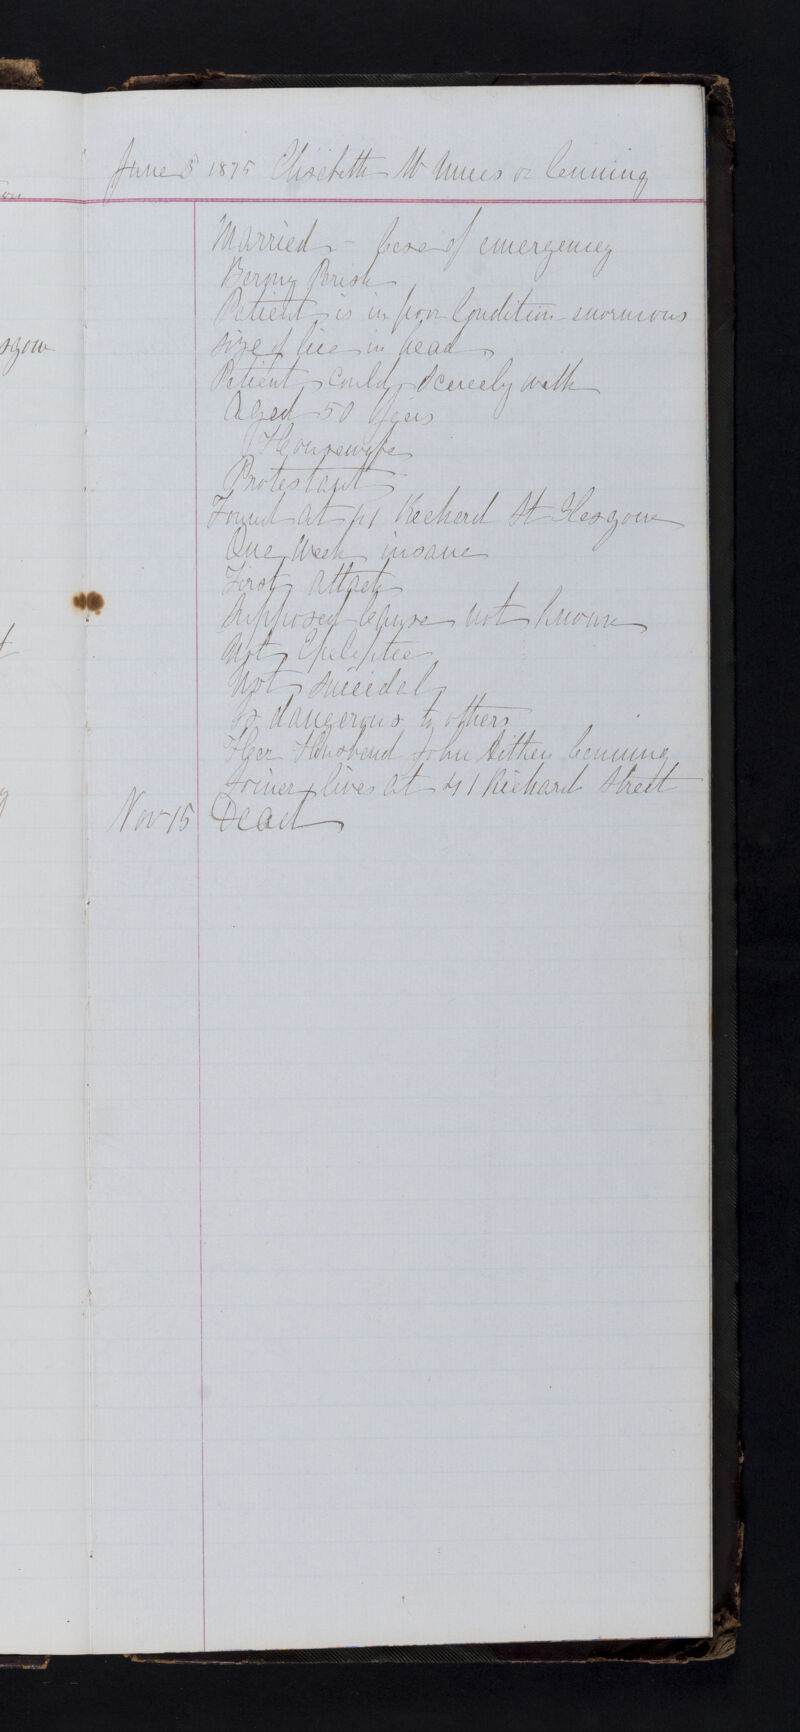 June 3 1875 Elisabeth Mc Innes or Canning
Married - Case of emergency
Barony Parish
Patient is in poor Condition enormous
size of lice in head
Patient could scarcely walk
Aged 50 years
Housewife
Protestant
Found at 41 Richard St Glasgow
One Week insane
First attack
Supposed cause not known
Not Epileptic
Not suicidal
Is dangerous to others
Her Husband John Aitken Canning
Joiner lives at 41 Richard Street
Nov 15 Dead